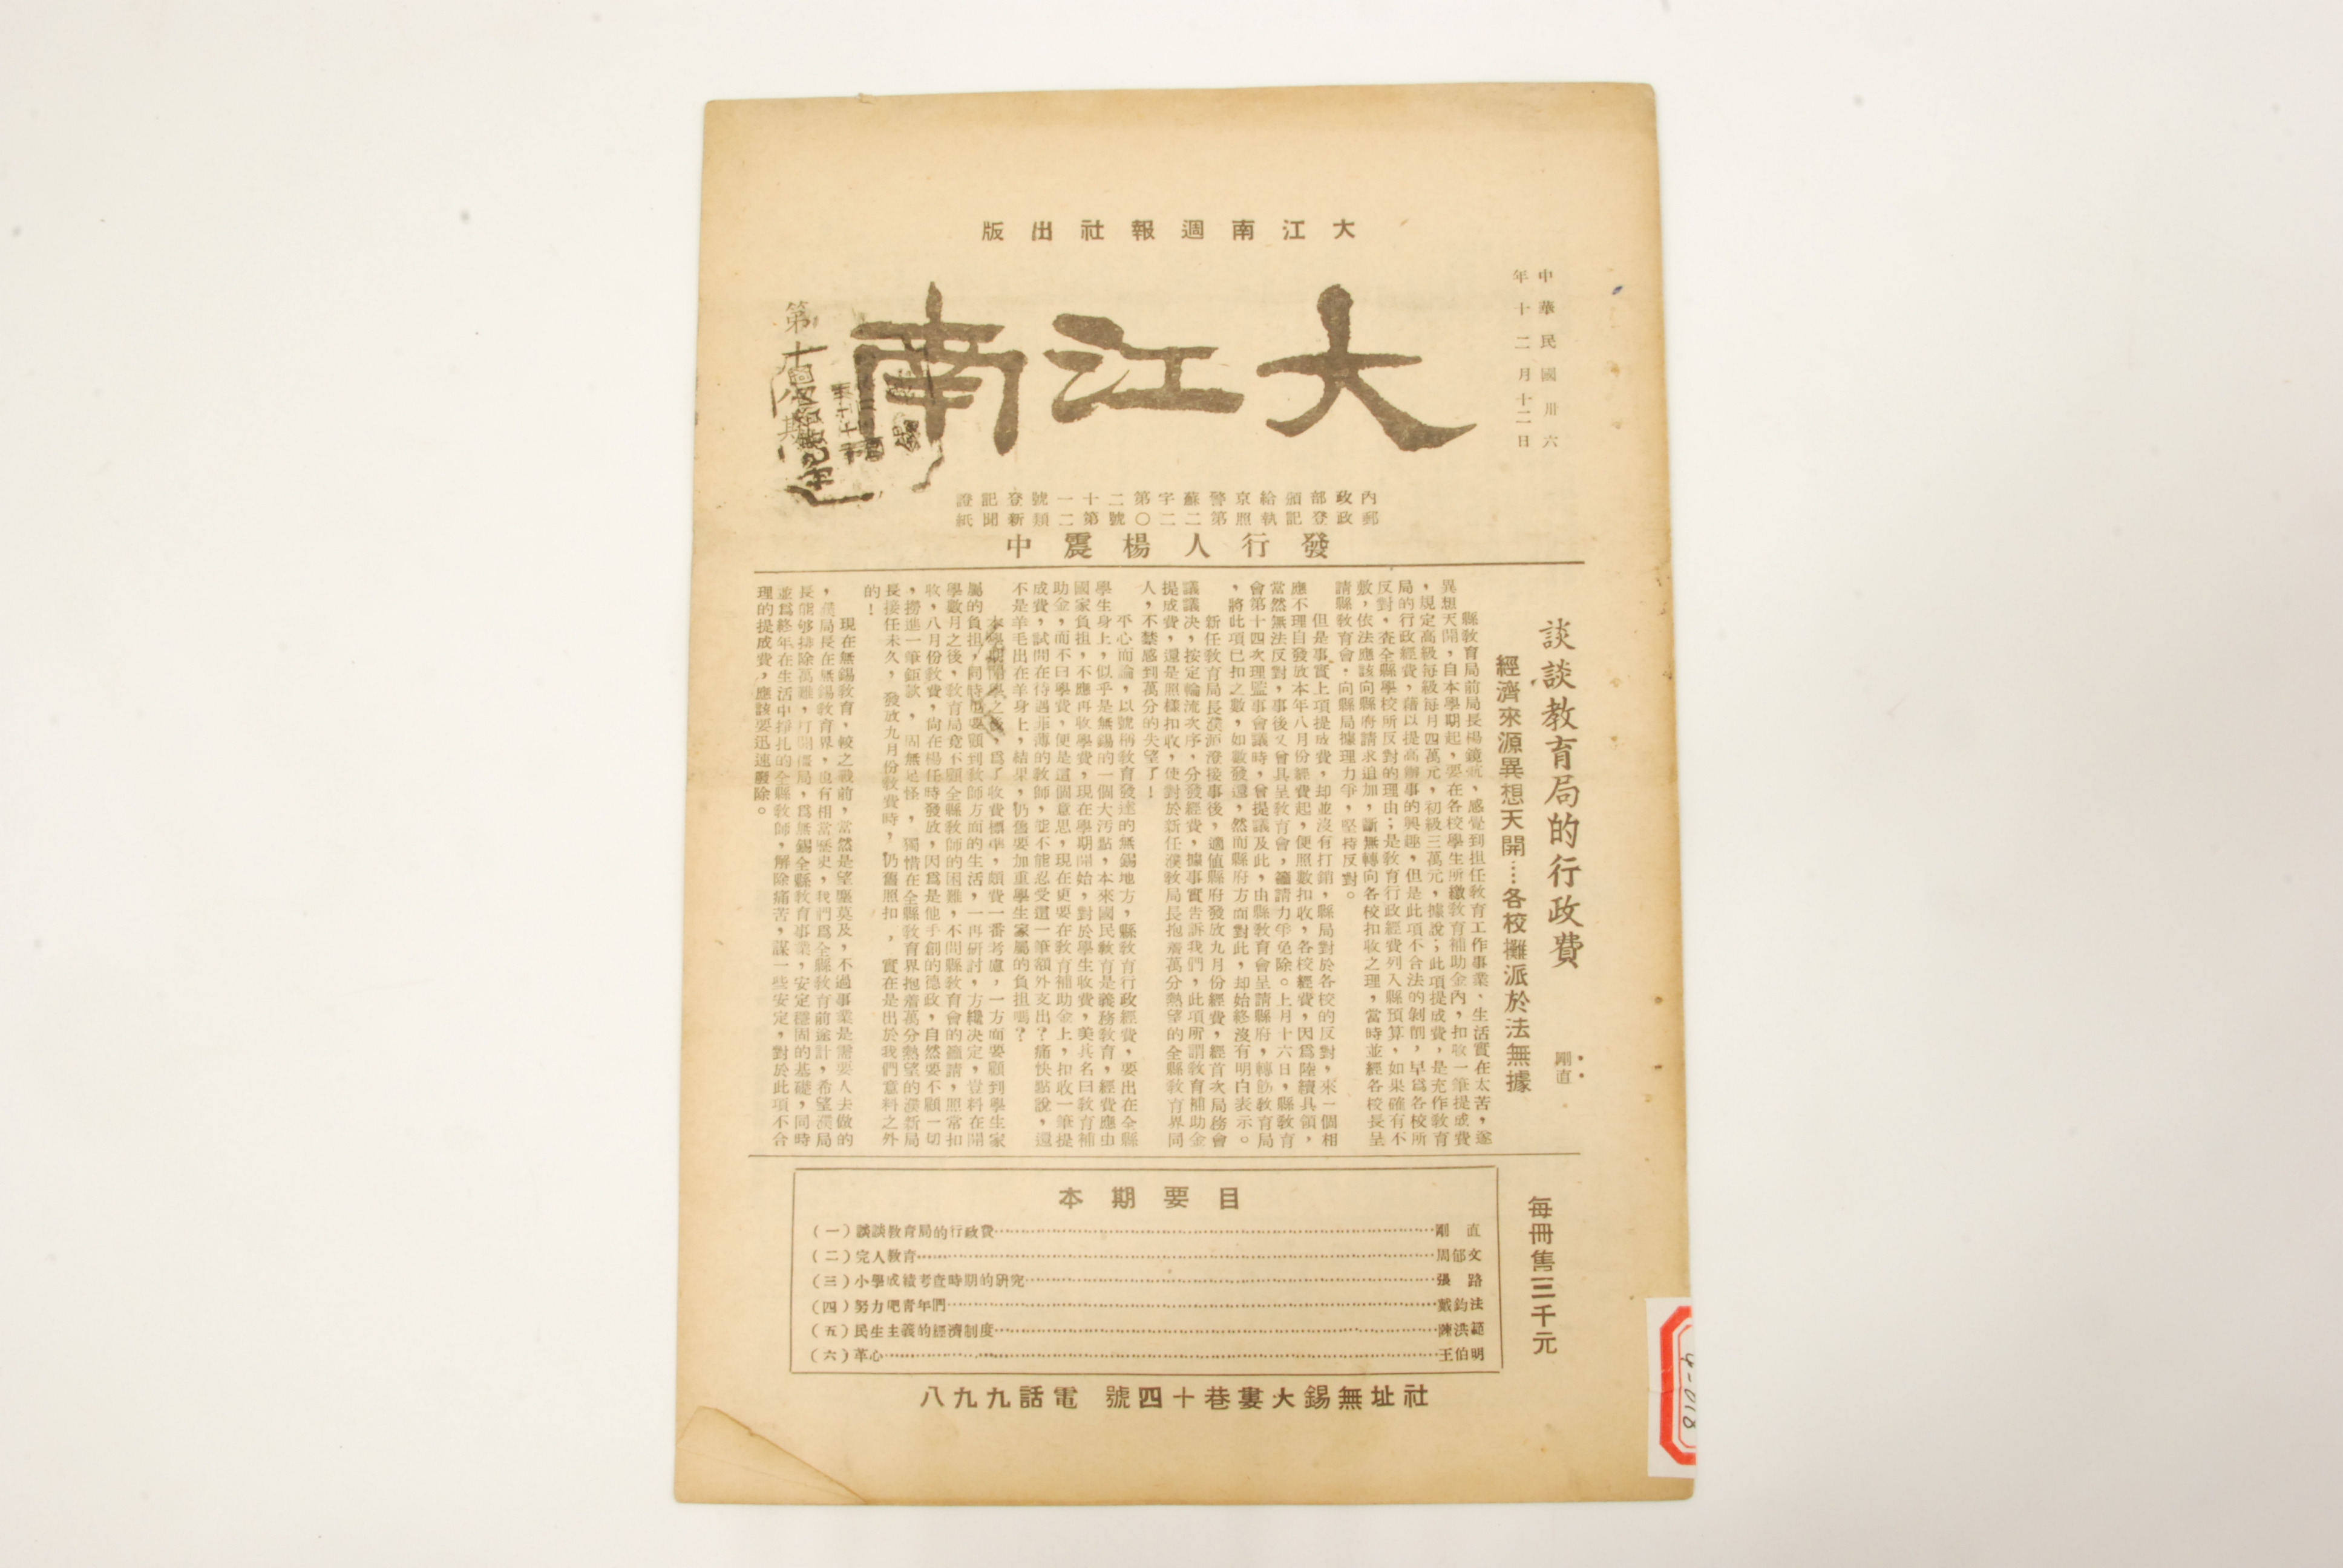 大江南週報社出版
中華民國卅六
年十二月十二日
大江南
第十八期
內政部頒給京警蘇字第二十一號登記證
郵政登記執照第二二〇號第二類新聞紙
發行人楊震中
談談教育局的行政費
經濟來源異想天開…各校攤派於法無據
剛直
縣教育局前局長楊鏡
感覺到担任教育工作事業、生活實在太苦,遂
異想天開,自本學期起,要在各校學生所繳教育補助金內,扣收一筆提成費
,規定高級每級每月四萬元,初級三萬元,據說;此項提成費,是充作教育
局的行政經費,藉以提高辦事的興趣,但是此項不合法的剝削,早爲各校所
反對,查全縣學校所反對的理由;是教育行政經費列入縣預算,如果確有不
敷,依法應該向縣府請求追加,斷無轉向各校扣收之理,當時並經各校長呈
請縣教育會,向縣局據理力爭,堅持反對。
但是事實上項提成費,却並沒有打銷,縣局對於各校的反對,來一個相
應不理自發放本年八月份經費起,便照數扣收,各校經費,因爲陸續具領,
當然無法反對,事後又曾具呈教育會,籲請力爭免除。上月十六日,縣教育
會第十四次理監事會議時,曾提議及此,由縣教育會呈請縣府,轉飭教育局
,將此項已扣之數,如數發還,然而縣府方面對此,却始終沒有明白表示。
新任教育局長濮源澄接事後,適值縣府發放九月份經費,經首次局務會
議議决,按定輪流次序,分發經費,據事實告訴我們,此項所謂教育補助金
提成費,還是照樣扣收,使對於新任濮教局長抱着萬分熱望的全縣教育界同
人,不禁感到萬分的失望了!
平心而論,以號稱教育發達的無錫地方,縣教育行政經費,要出在全縣
學生身上,似乎是無錫的一個大汚點,本來國民教育是義務教育,經費應由
國家負担,不應再收學費,現在學期開始,對於學生收費,美其名曰教育補
助金,而不曰學費,便是這個意思,現在更要在教育補助金上,扣收一筆提
成費,試問在待遇菲薄的教師,能不能忍受這一筆額外支出?痛快點說,還
不是羊毛出在羊身上,結果,仍舊要加重學生家屬的負担嗎?
本學期開學之後,爲了收費標準,頗費一番考慮,一方面要顧到學生家
屬的負担,同時也要顧到教師方面的生活,一再研討,方纔决定,豈料在開
學數月之後,教育局竟不顧全縣教師的困難,不問縣教育會的籲請,照常扣
收,八月份教費,尙在楊任時發放,因爲是他手創的德政,自然要不顧一切
,撈進一筆鉅欵,固無足怪,獨惜在全縣教育界抱着萬分熱望的濮新局
長接任未久,發放九月份教費時,仍舊照扣,實在是出於我們意料之外
的!
現在無錫教育,較之戰前,當然是望塵莫及,不過事業是需要人去做的
,濮局長在無錫教育界,也有相當歷史,我們爲全縣教育前途計,希望濮局
長能够排除萬難,打開僵局,爲無錫全縣教育事業,安定穩固的基礎,同時
並爲終年在生活中掙扎的全縣教師,解除痛苦,謀一些安定,對於此項不合
理的提成費,應該要迅速廢除。
本期要目
(一)談談教育局的行政費……剛直
(二)完人教育……周郁文
(三)小學成績考查時期的研究……張路
(四)努力吧青年們……戴鈞法
(五)民生主義的經濟制度……陳洪範
(六)革心……王伯明
每冊售三千元
社址無錫大婁巷十四號 電話九九八
4-018